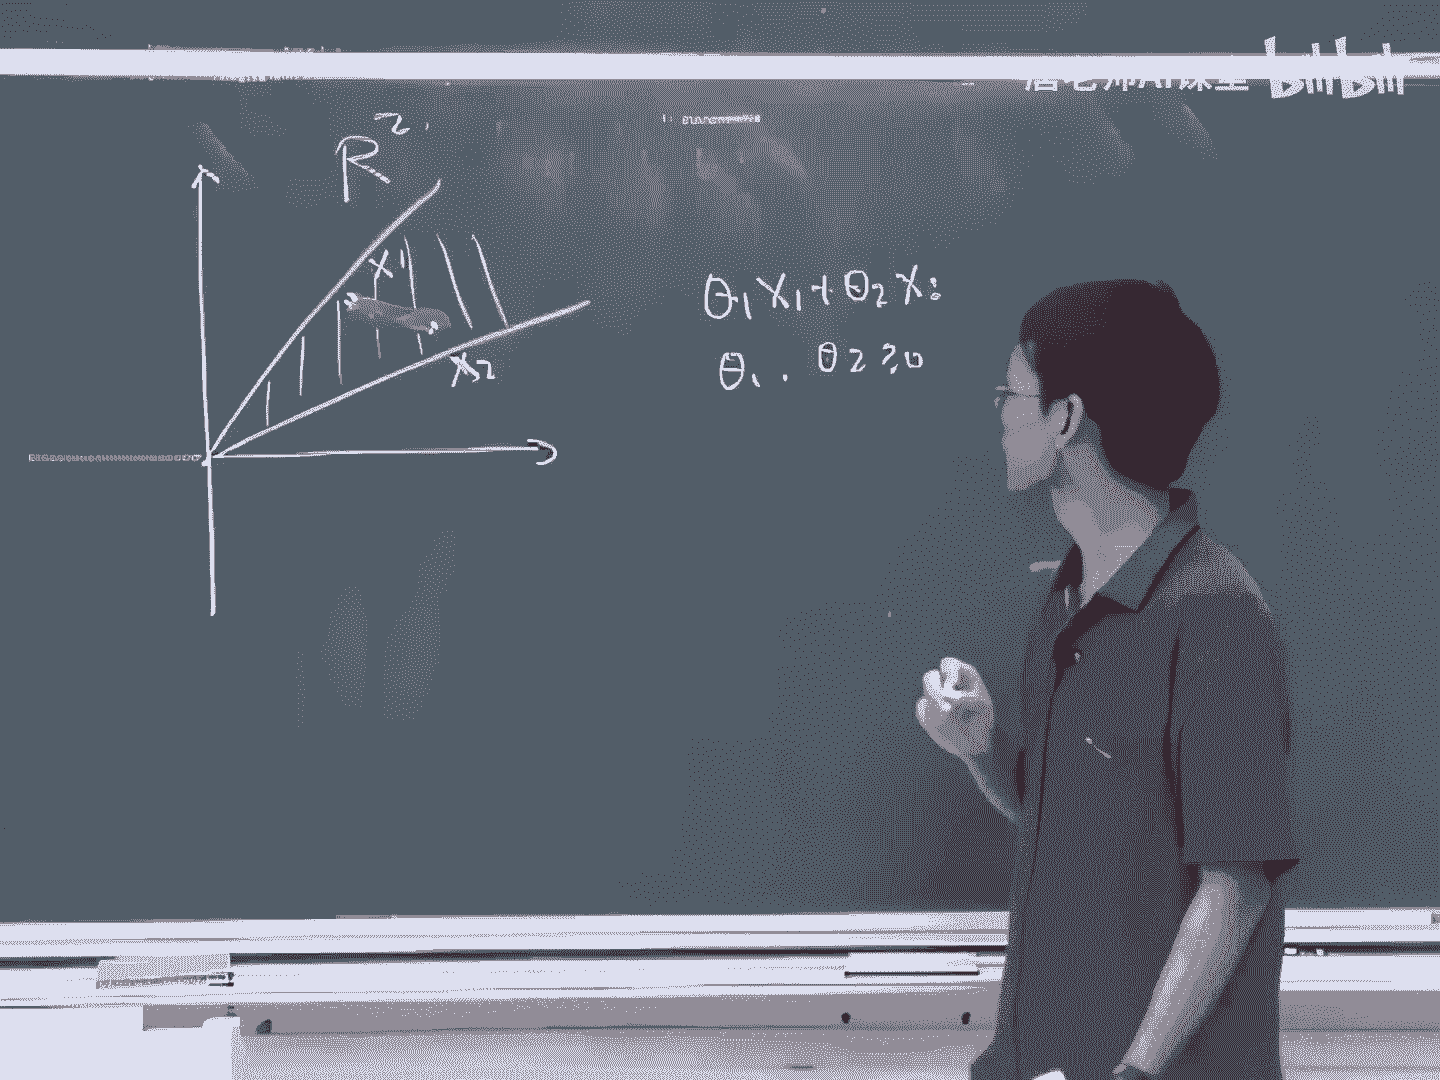 bilibili
R²
X1
X2
θ1 X1 + θ2 X2
θ1 . θ2 ≥ 0